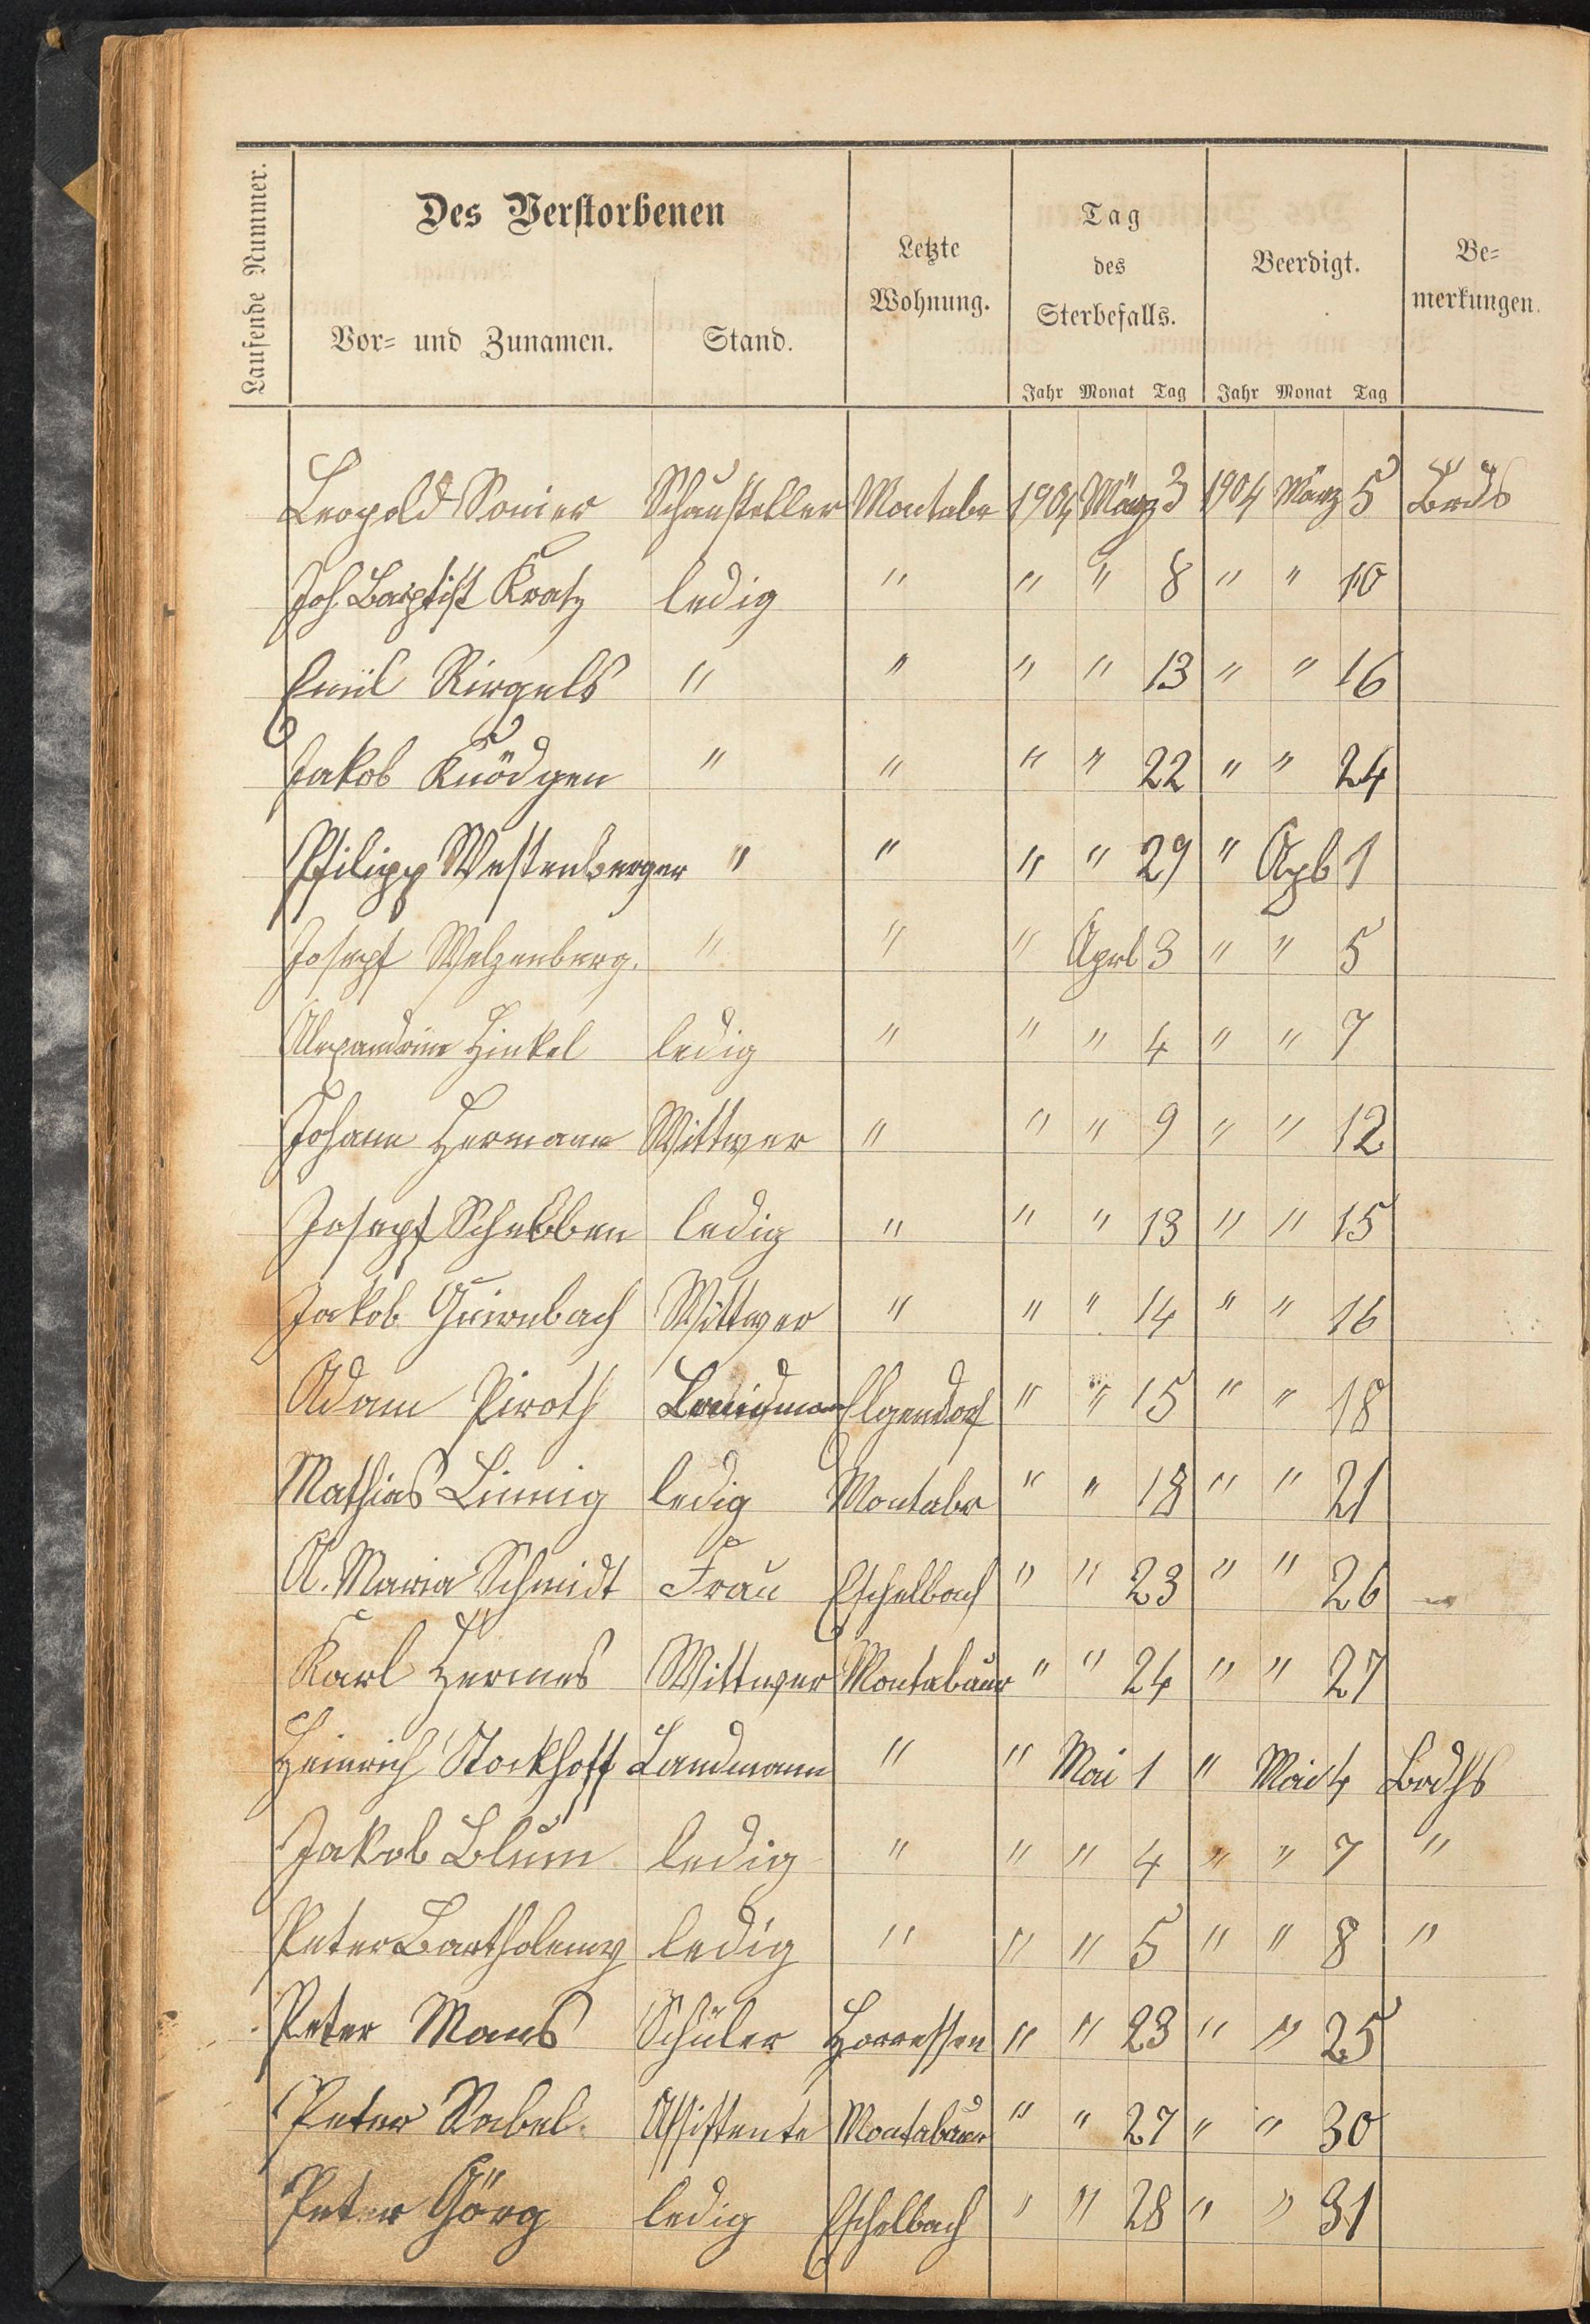 Laufende Nummer.
Des Verstorbenen
Vor= und Zunamen.
Stand.
Letzte
Wohnung.
Tag
des
Sterbefalls.
Beerdigt.
Be=
merkungen.
Jahr Monat Tag Jahr Monat Tag
Leopold Schausteller Montabr 1904 März 3 1904 März 5
Joh. Baptist Kratz ledig " " " 8 " " 10
Emil Ringels " " " " 13 " " 16
Jakob Knödgen " " " " 22 " " 24
Philipp Westenberger " " " " 29 " Apl 1
Joseph Welzenberg. " " " Aprl 3 " " 5
Alexandrine Hinkel ledig " " " 4 " " 7
Johann Hermann Wittwer " " " 9 " " 12
Joseph Schebben ledig " " " 13 " " 15
Jakob Quirnbach Wittwer " " " 14 " " 16
Adam Piroth Landmann Elgendorf " " 15 " " 18
Mathias Linnig ledig Montabr " " 18 " " 21
A. Maria Schmidt Frau Eschelbach " " 23 " " 26
Karl Hermes Wittwer Montabaur " " 24 " " 27
Heinrich Stockhoff Landmann " " Mai 1 " Mai 4 Brdhs
Jakob Blum ledig " " " 4 " " 7 "
Peter Bartholemy ledig " " " 5 " " 8 "
Peter Mans Schüler Horressen " " 23 " " 25
Peter Sabel Assistente Montabaur " " 27 " " 30
Peter Görg ledig Eschelbach " " 28 " " 31